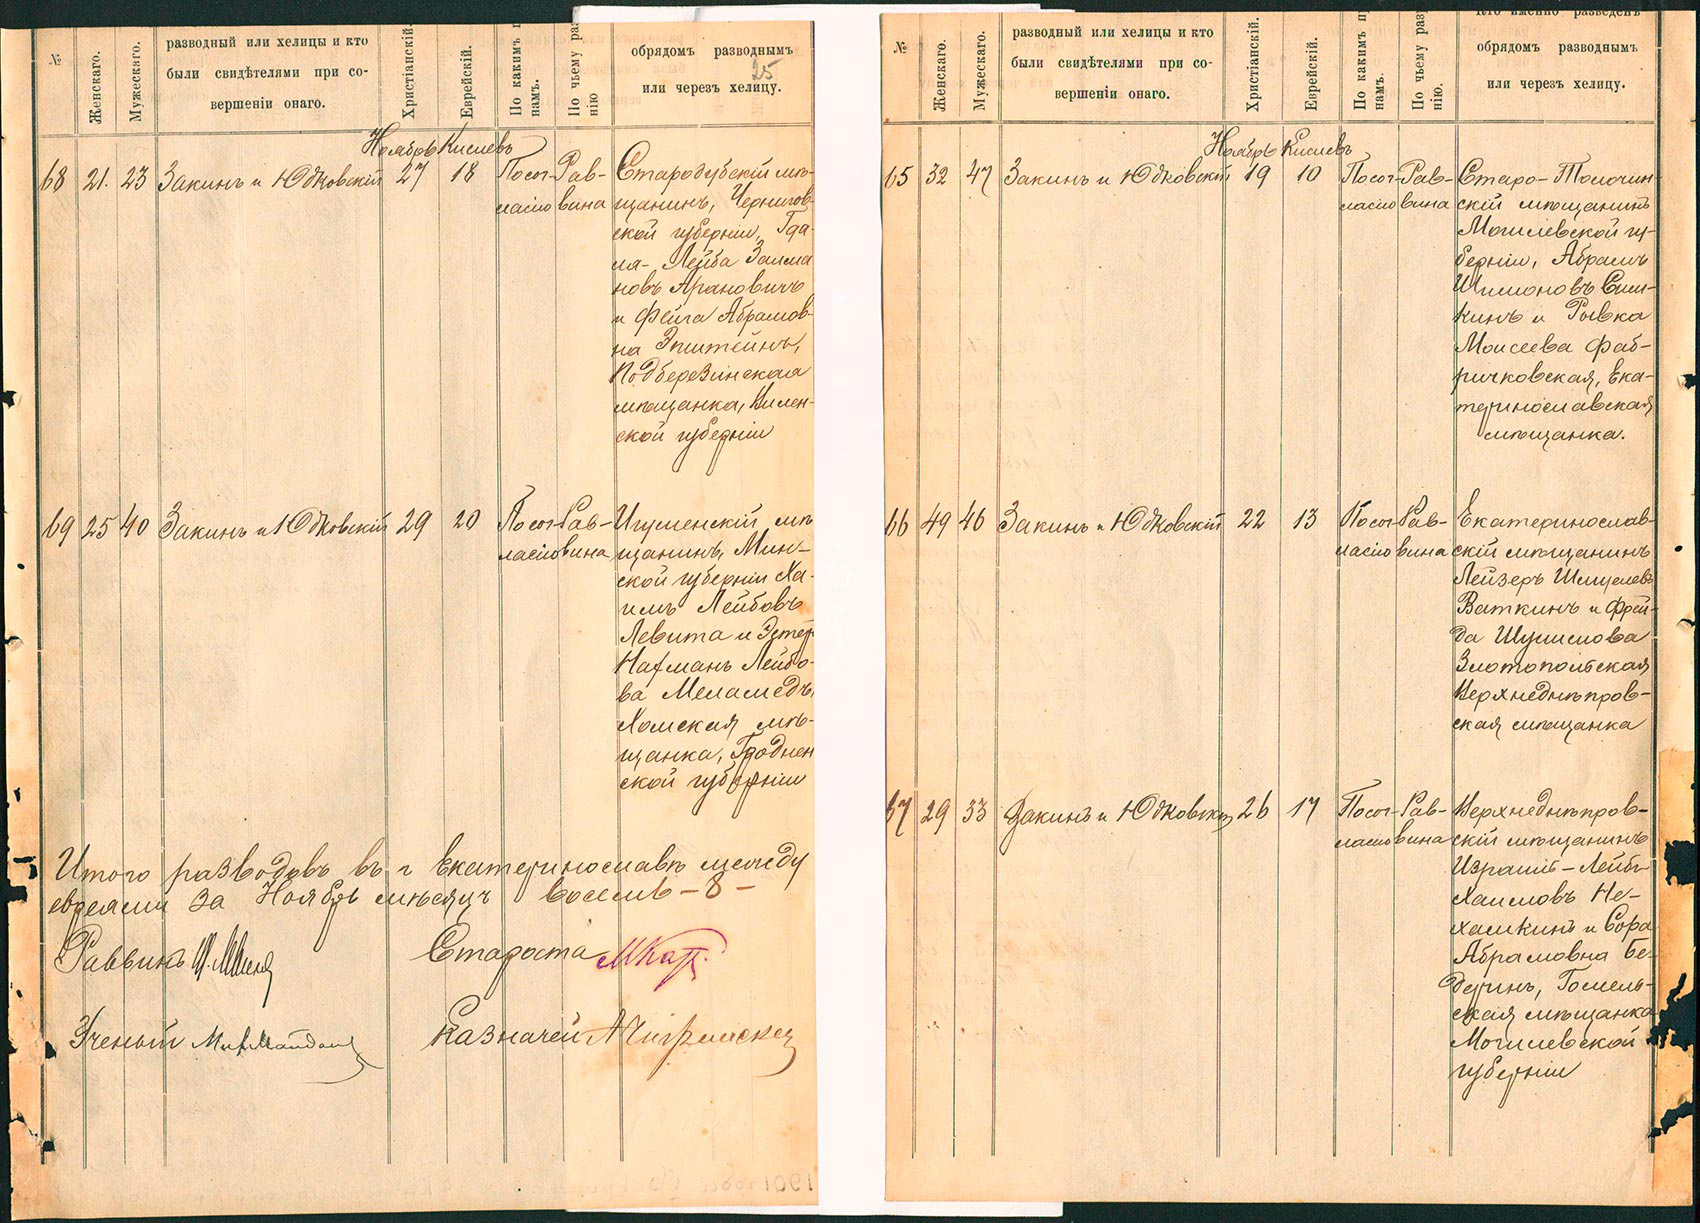 №
Женскаго.
Мужескаго.
разводный или хелицы и кто
были свидѣтелями при со-
вершеніи онаго.
Христіанскій.
Еврейскій.
По какимъ
намъ.
По чьему раз
нію
обрядомъ разводнымъ
или черезъ хелицу.
25
Ноябрь Кислевъ
68 21. 23 Закинъ и Юдковскій 27 18 Посог- Рав-
ласію вина
Стародубскій мѣ-
щанинъ, Чернигов-
ской губерніи, Гда-
ля-Лейба Залма
новъ Арановичъ
и Фейга Абрамов-
на Эпштейнъ,
Подберезинская
мѣщанка, Вилен-
ской губерніи
69 25 40 Закинъ и Юдковскій 29 20 Посог- Рав-
ласію вина
Игуменскій мѣ
щанинъ, Мин-
ской губерніи Ха-
имъ Лейбовъ
Левита и Эстер
Нахманъ Лейбо-
ва Меламедъ,
Хомская мѣ-
щанка, Гроднен
ской губерніи
Итого разводовъ въ г Екатеринославѣ между
евреями за Ноябрь мѣсяцъ восемь -8-
Раввинъ
Староста
Ученый
Казначей
№
Женскаго.
Мужескаго.
разводный или хелицы и кто
были свидѣтелями при со-
вершеніи онаго.
Христіанскій.
Еврейскій.
По какимъ п
намъ.
По чьему раз
нію.
Кто именно разведенъ
обрядомъ разводнымъ
или черезъ хелицу.
Ноябрь Кислевъ
65 32 47 Закинъ и Юдковскій 19 10 Посог- Рав-
ласію вина
Старо-Толочин-
скій мѣщанинъ
Могилевской гу-
берніи, Абрамъ
Шимоновъ Сим-
кинъ и Рывка
Моисеева Фаб-
ричковская, Ека-
теринославская
мѣщанка.
66 49 46 Закинъ и Юдковскій 22 13 Посог- Рав-
ласію вина
Екатеринослав-
скій мѣщанинъ
Лейзеръ Шмулевъ
Ваткинъ и Фрей-
да Шулимова
Златопольская
Верхнеднѣпров-
ская мѣщанка
67 29 33 Закинъ и Юдковскій 26 17 Посог- Рав-
ласію вина
Верхнеднѣпров-
скій мѣщанинъ
Израиль-Лейбъ
Хаимовъ Не-
хамкинъ и Сора
Абрамовна Бе-
деринъ, Гомель-
ская мѣщанка
Могилевской
губерніи